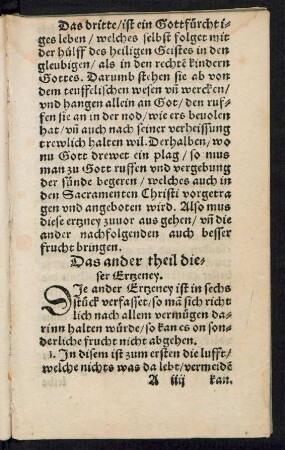 Das dritte/ist ein Gottfürcht i-
ges leben/welches selbst folget mit
der hülff des heiligen Geistes in den
gleubigen/als in den rechtē kindern
Gottes. Darumb stehen sie ab von
dem teuffelischen wesen vñ wercken/
vnd hangen allein an Got/den ruf-
fen sie an in der nod/wie ers bevolen
hat/vñ auch nach seiner verheissung
trewlich halten wil. Derhalben/wo
nu Gott drewet ein plag/so mus
man zu Gott ruffen vnd vergebung
der sünde begeren/welches auch in
den Sacramenten Christi vorgetra
gen vnd angeboten wird. Also mus
diese ertzney zuuor aus gehen/vñ die
ander nachfolgenden auch besser
frucht bringen.
Das ander theil die-
ser Ertzeney.
DJe ander Ertzeney ist in sechs
stück verfasset/so mā sich richt
lich nach allem vermügen da-
rinn halten würde/so kan es on son-
derliche frucht nicht abgehen.
1. Jn disem ist zum ersten die lufft/
welche nichts was da lebt/vermeidē
A iiij kan.